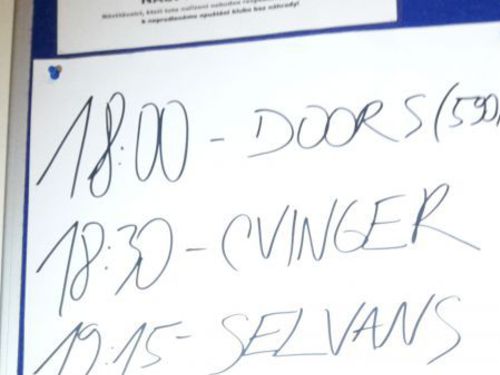 Návštěvníci, kteří tuto nařízení nebudou
k neprodlenému opuštění klubu bez náhrady!
18:00 - DOORS (590
18:30 - CVINGER
19:15 - SELVANS